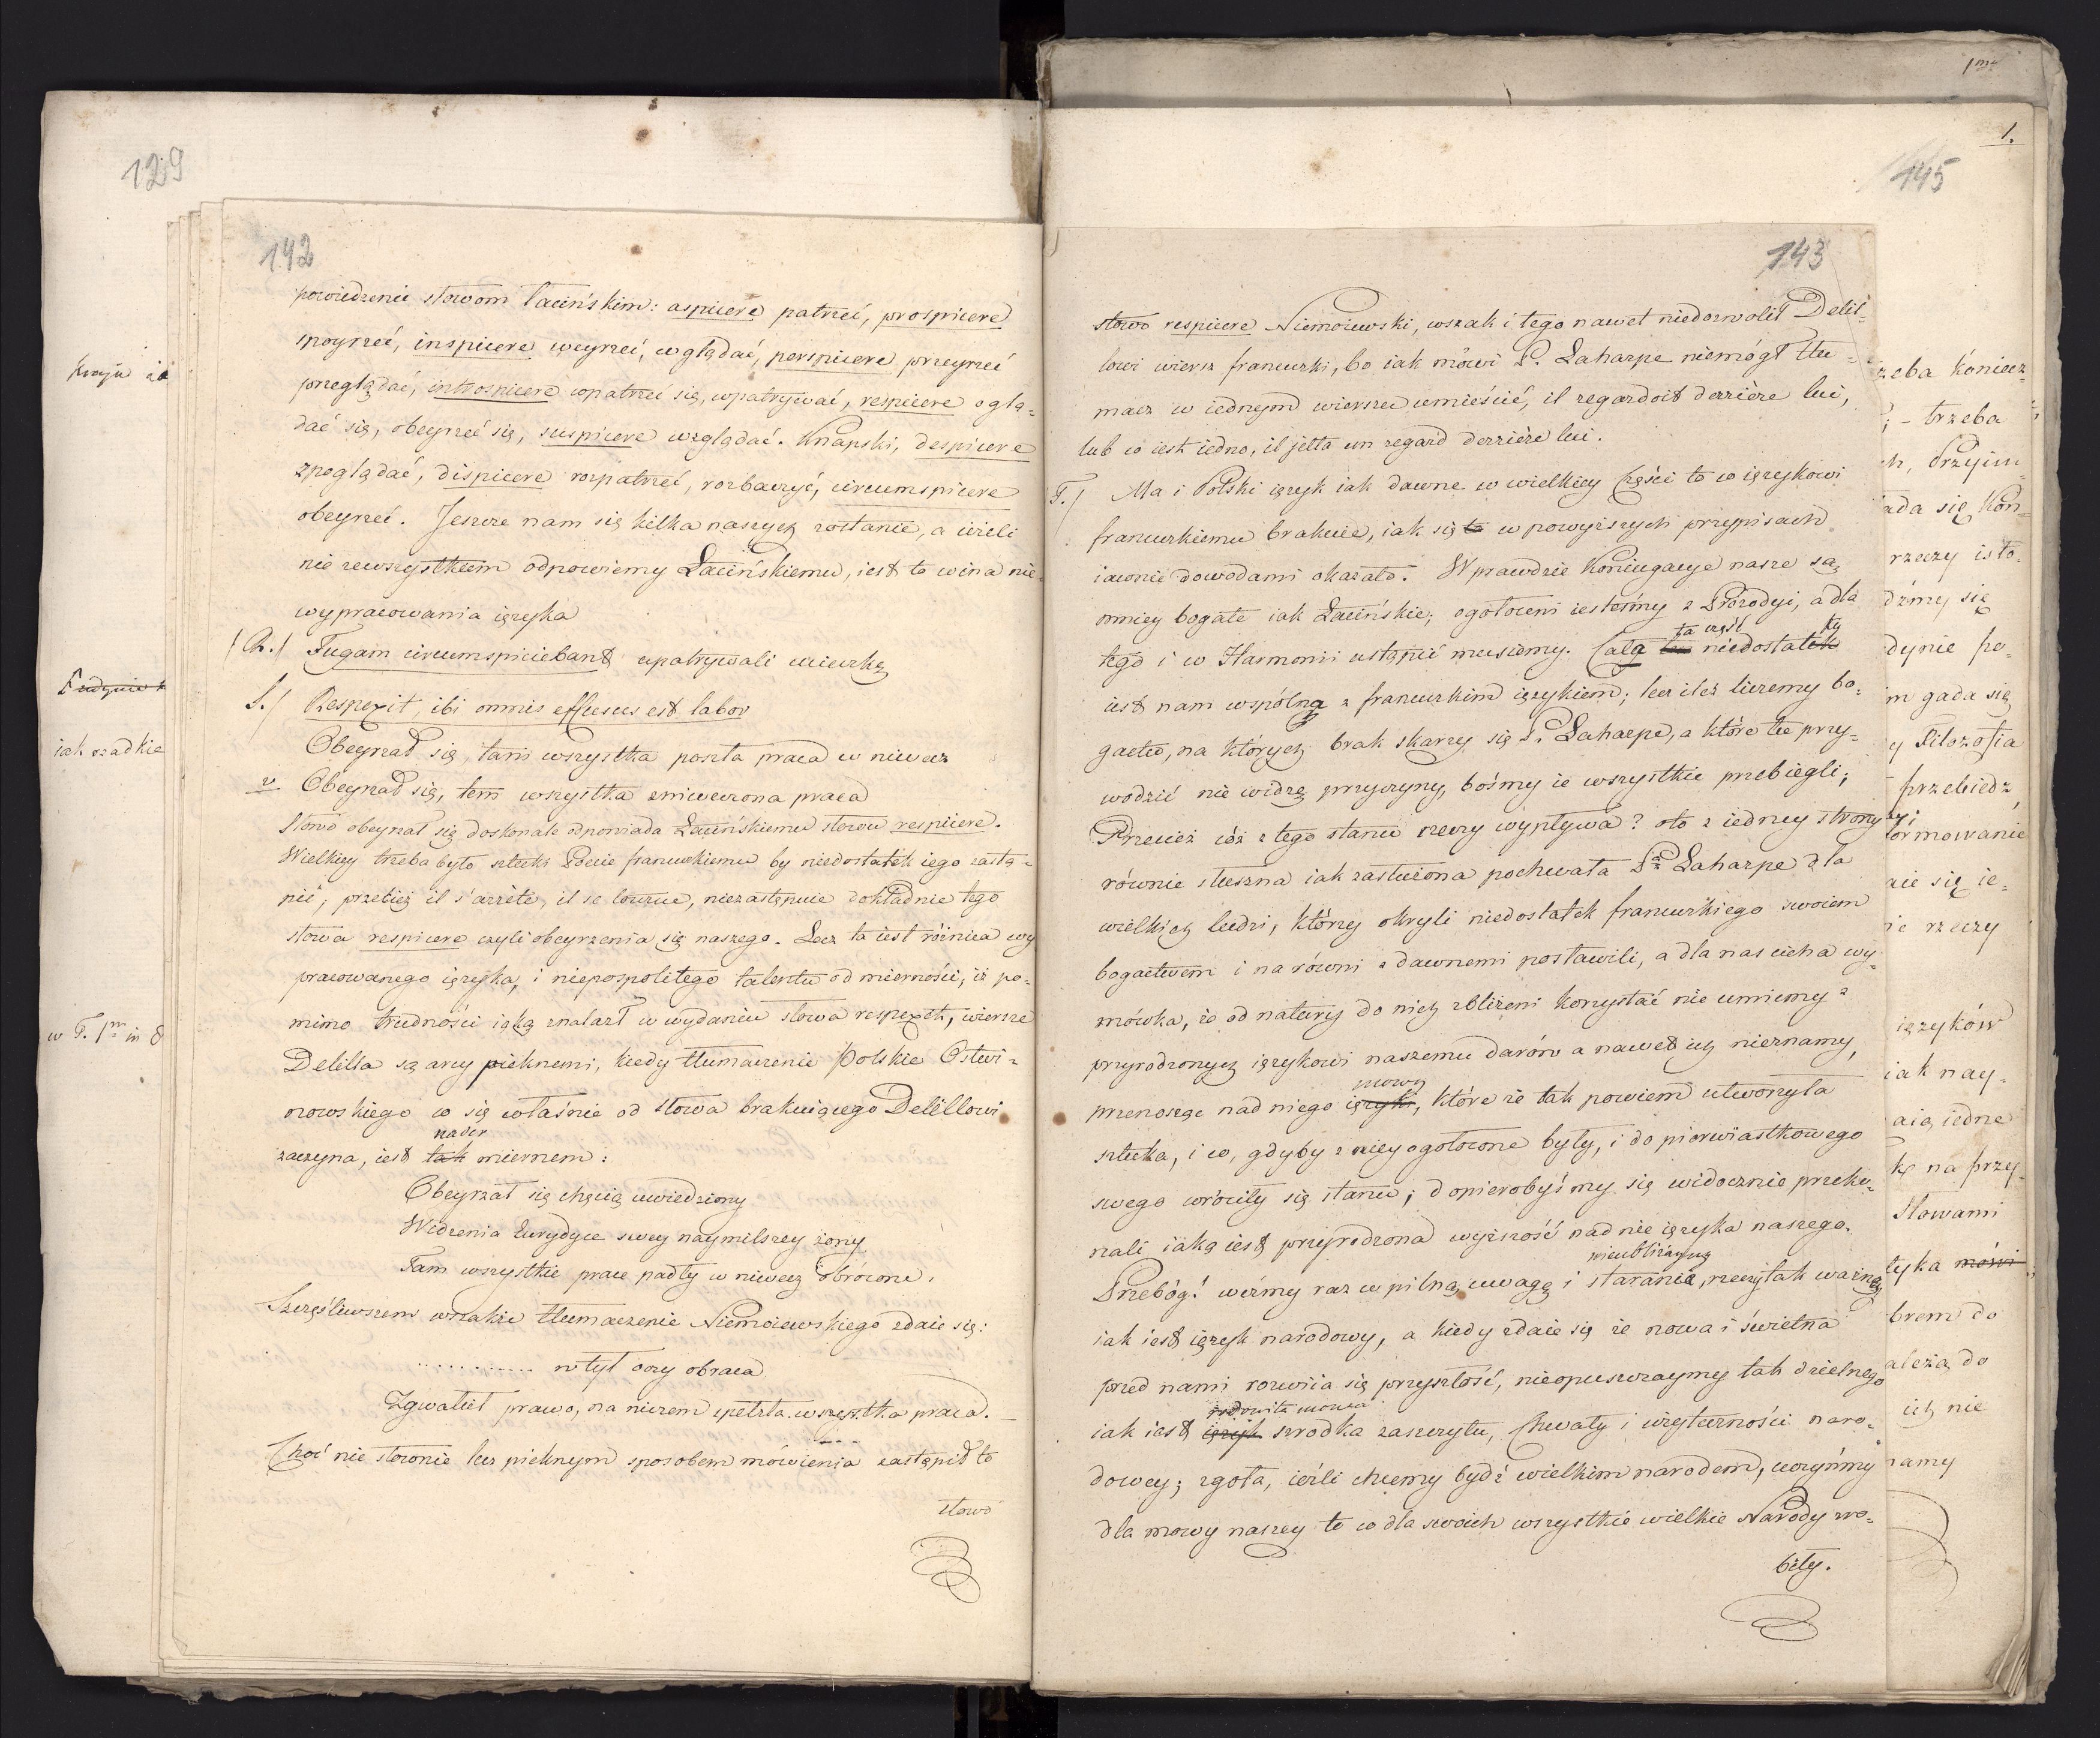 129
kraju
jak rzadkie
w T. 1m in 8
142
powiedzenie słowom łacińskim: aspicere patrzeć, prospicere
spoyrzeć, inspicere weyrzeć, wglądać, perspicere przeyrzeć
przeglądać, introspicere wpatrzeć się, wpatrywać, respicere oglą=
dać się, obeyrzeć się, suspicere wzglądać. Knapski, despicere
zpoglądać, dispicere rozpatrzeć, rozbaczyć, circumspicere
obeyrzeć. Jeszcze nam się kilka naszych zostanie, a ieżeli
nie zewszystkiem odpowiemy Łacińskiemu, iest to wina nie=
wypracowania ięzyka
(R.) Fugam circumspiciebant upatrywali ucieczkę
S.) Respexit, ibi omnis effusus est labor
Obeyrzał się, tam wszystka poszła praca w niwecz
v Obeyrzał się, tem wszystka zniweczona praca
Słowo obeyrzał się doskonale odpowiada Łacińskiemu słowu respicere.
Wielkiey trzeba było sztuki Poecie francuzkiemu by niedostatek iego zastą=
pić; przecież il s'arrête, il se tourne, niezastępuie dokładnie tego
słowa respicere czyli obeyrzenia się naszego. Lecz ta iest różnica wy
pracowanego ięzyka, i niepospolitego talentu od mierności, iż po=
mimo trudności iaką znalazł w wydaniu słowa respexit, wiersze
Delilla są arcy pieknemi, kiedy tłumaczenie Polskie Ostwi=
nowskiego co się właśnie od słowa brakuiącego Delillowi
nader
zaczyna, iest tak miernem:
Obeyrzał się chęcią uwiedziony
Widzenia Eurydyce swey naymilszey żony
Tam wszystkie prace padły w niwecz obrócone.
Szczęśliwszem wszakże tłumaczenie Niemoiewskiego zdaie się:
. . . . . . . . . . . . w tył oczy obraca
Zgwałcił prawo, na niczem spełzła wszystka praca.
Choć nie słownie lecz pieknym sposobem mówienia zastąpił to
słowo
1m
1.
145
143
słowo respicere Niemoiewski, wszak i tego nawet niedozwolił Delil=
lowi wiersz francuzki, bo iak mówi P. Laharpe niemógł tłu=
macz w iednym wierszu umieścić, il regardoit derrière lui,
lub co iest iedno, il jetta un regard derrière lui.
T.) Ma i Polski ięzyk iak dawne w wielkiey części to co ięzykowi
francuzkiemu brakuie, iak się to w powyższych przypisach
iawnie dowodami okazało. Wprawdzie Koniugacye nasze są
mniey bogate iak Łacińskie; ogołoceni iesteśmy z Prozodyi, a dla
tego i w Harmonii ustąpić musiemy. Cała ta część niedostatek ki
iest nam wspólną z francuzkim ięzykiem; lecz ileż liczemy bo=
gactw, na których brak skarzy się P. Laharpe, a które tu przy=
wodzić nie widzę przyczyny, bośmy ie wszystkie przebiegli;
Przecież cóż z tego stanu rzeczy wypływa? oto z iedney strony
równie słuszna iak zasłużona pochwała Pa Laharpe dla
wielkich ludzi, którzy okryli niedostatek francuzkiego swoiem
bogactwem i na równi z dawnemi postawili, a dla nas cicha wy=
mówka, że od natury do nich zbliżeni korzystać nie umiemy z
przyrodzonych ięzykowi naszemu darów a nawet ich nieznamy,
mowy
przenosząc nad niego ięzyki, które że tak powiem utworzyła
sztuka, i co, gdyby z niey ogołocone były, i do pierwiastkowego
swego wróciły się stanu; dopierobyśmy się widocznie przeko=
nali iaką iest przyrodzona wyższość nad nie ięzyka naszego.
nieubliżaymy
Przebóg! weźmy raz w pilną uwagę i starania, rzeczy tak ważney
iak iest ięzyk narodowy, a kiedy zdaie się że nowa i świetna
przed nami rozwiia się przyszłość, nieopuszczaymy tak dzielnego
rodowita mowa
iak iest ięzyk szrodka zaszczytu, chwały i użyteczności naro=
dowey; zgoła, ieźli chcemy bydź wielkim narodem, uczyńmy
dla mowy naszey to co dla swoich wszystkie wielkie Narody zro=
biły.
zeba koniecz=
- trzeba
ch, Przyim
ada się Kon=
rzeczy isto=
dźmy się
dynie po=
m gada się
y Filozofia
przebiedz
formowanie
aie się ie=
ie rzeczy
ięzyków
iak nay=
aią iedne
kę na przy=
Słowami
tyka mówi
brem do
ależą do
ich nie
namy